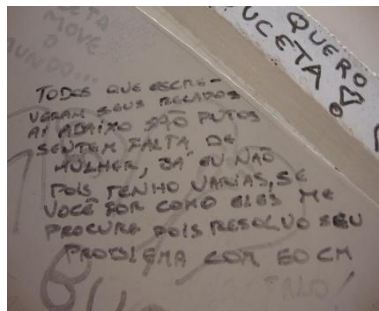 MOVE
O
MUNDO...
QUERO
BUCETA!
TODOS QUE ESCRE-
VERAM SEUS RECADOS
AI ABAIXO SÃO PUTOS
SENTEM FALTA DE
MULHER, JÁ EU NÃO
POIS TENHO VARIAS, SE
VOCÊ FOR COMO ELES ME
PROCURE POIS RESOLVO SEU
PROBLEMA COM 20 CM